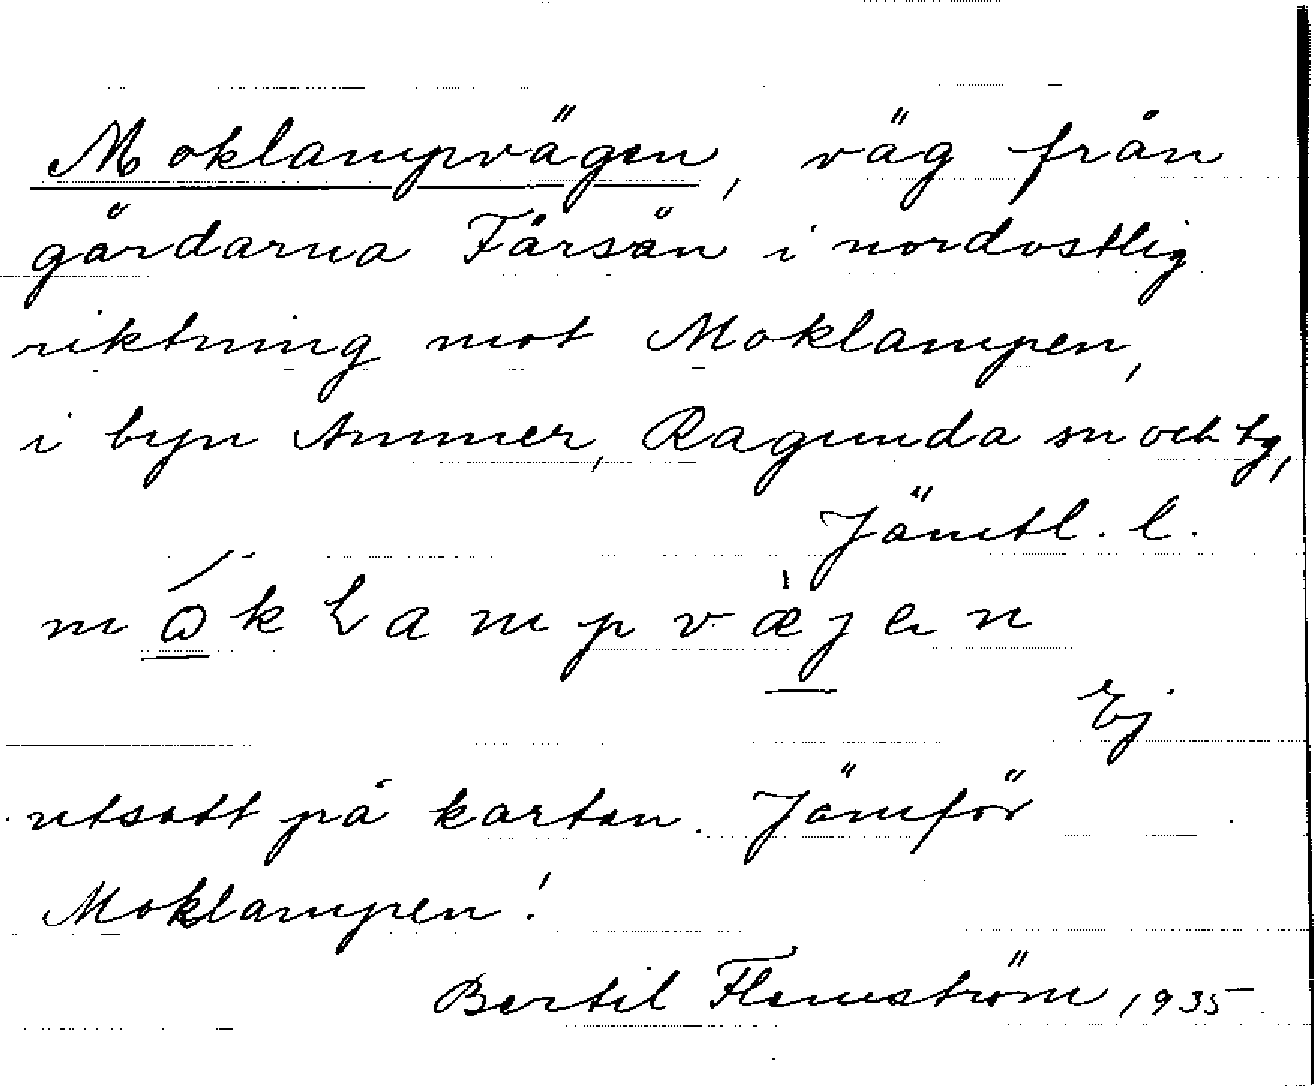 Moklampvägen, väg från
gårdarna Färsån i nordostlig
riktning mot Moklampen,
i byn Ammer, Ragunda sn och tg,
Jämtl. l.
Ej
utsatt på kartan. Jämför
Moklampen!
Bertil Flemström, 1935